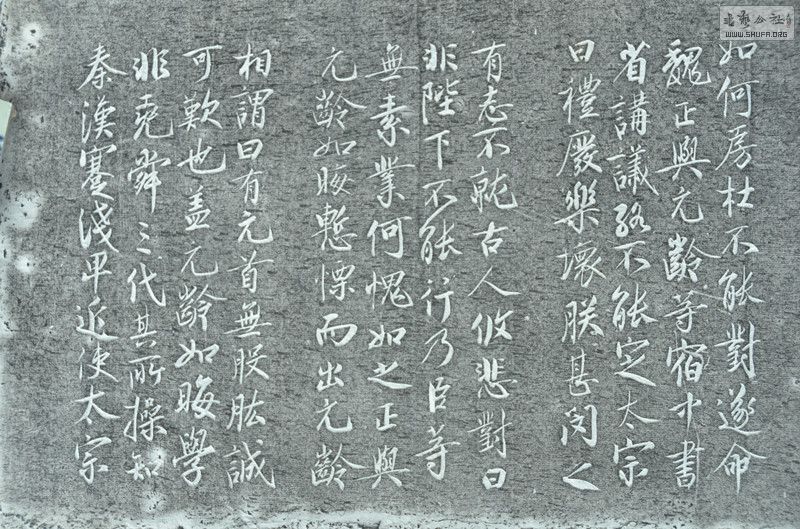 如何房杜不能對遂命
魏正與元齡等宿中書
省講議終不能定太宗
曰禮廢樂壞朕甚閔之
有志不就古人攸悲對曰
非陛下不能行乃臣等
無素業何愧如之正與
元齡如晦慙慄而出元齡
相謂曰有元首無股肱誠
可歎也盖元齡如晦學
非堯舜三代其所操知
秦漢蹇淺卑近使太宗
書藝公社
WWW.SHUFA.ORG